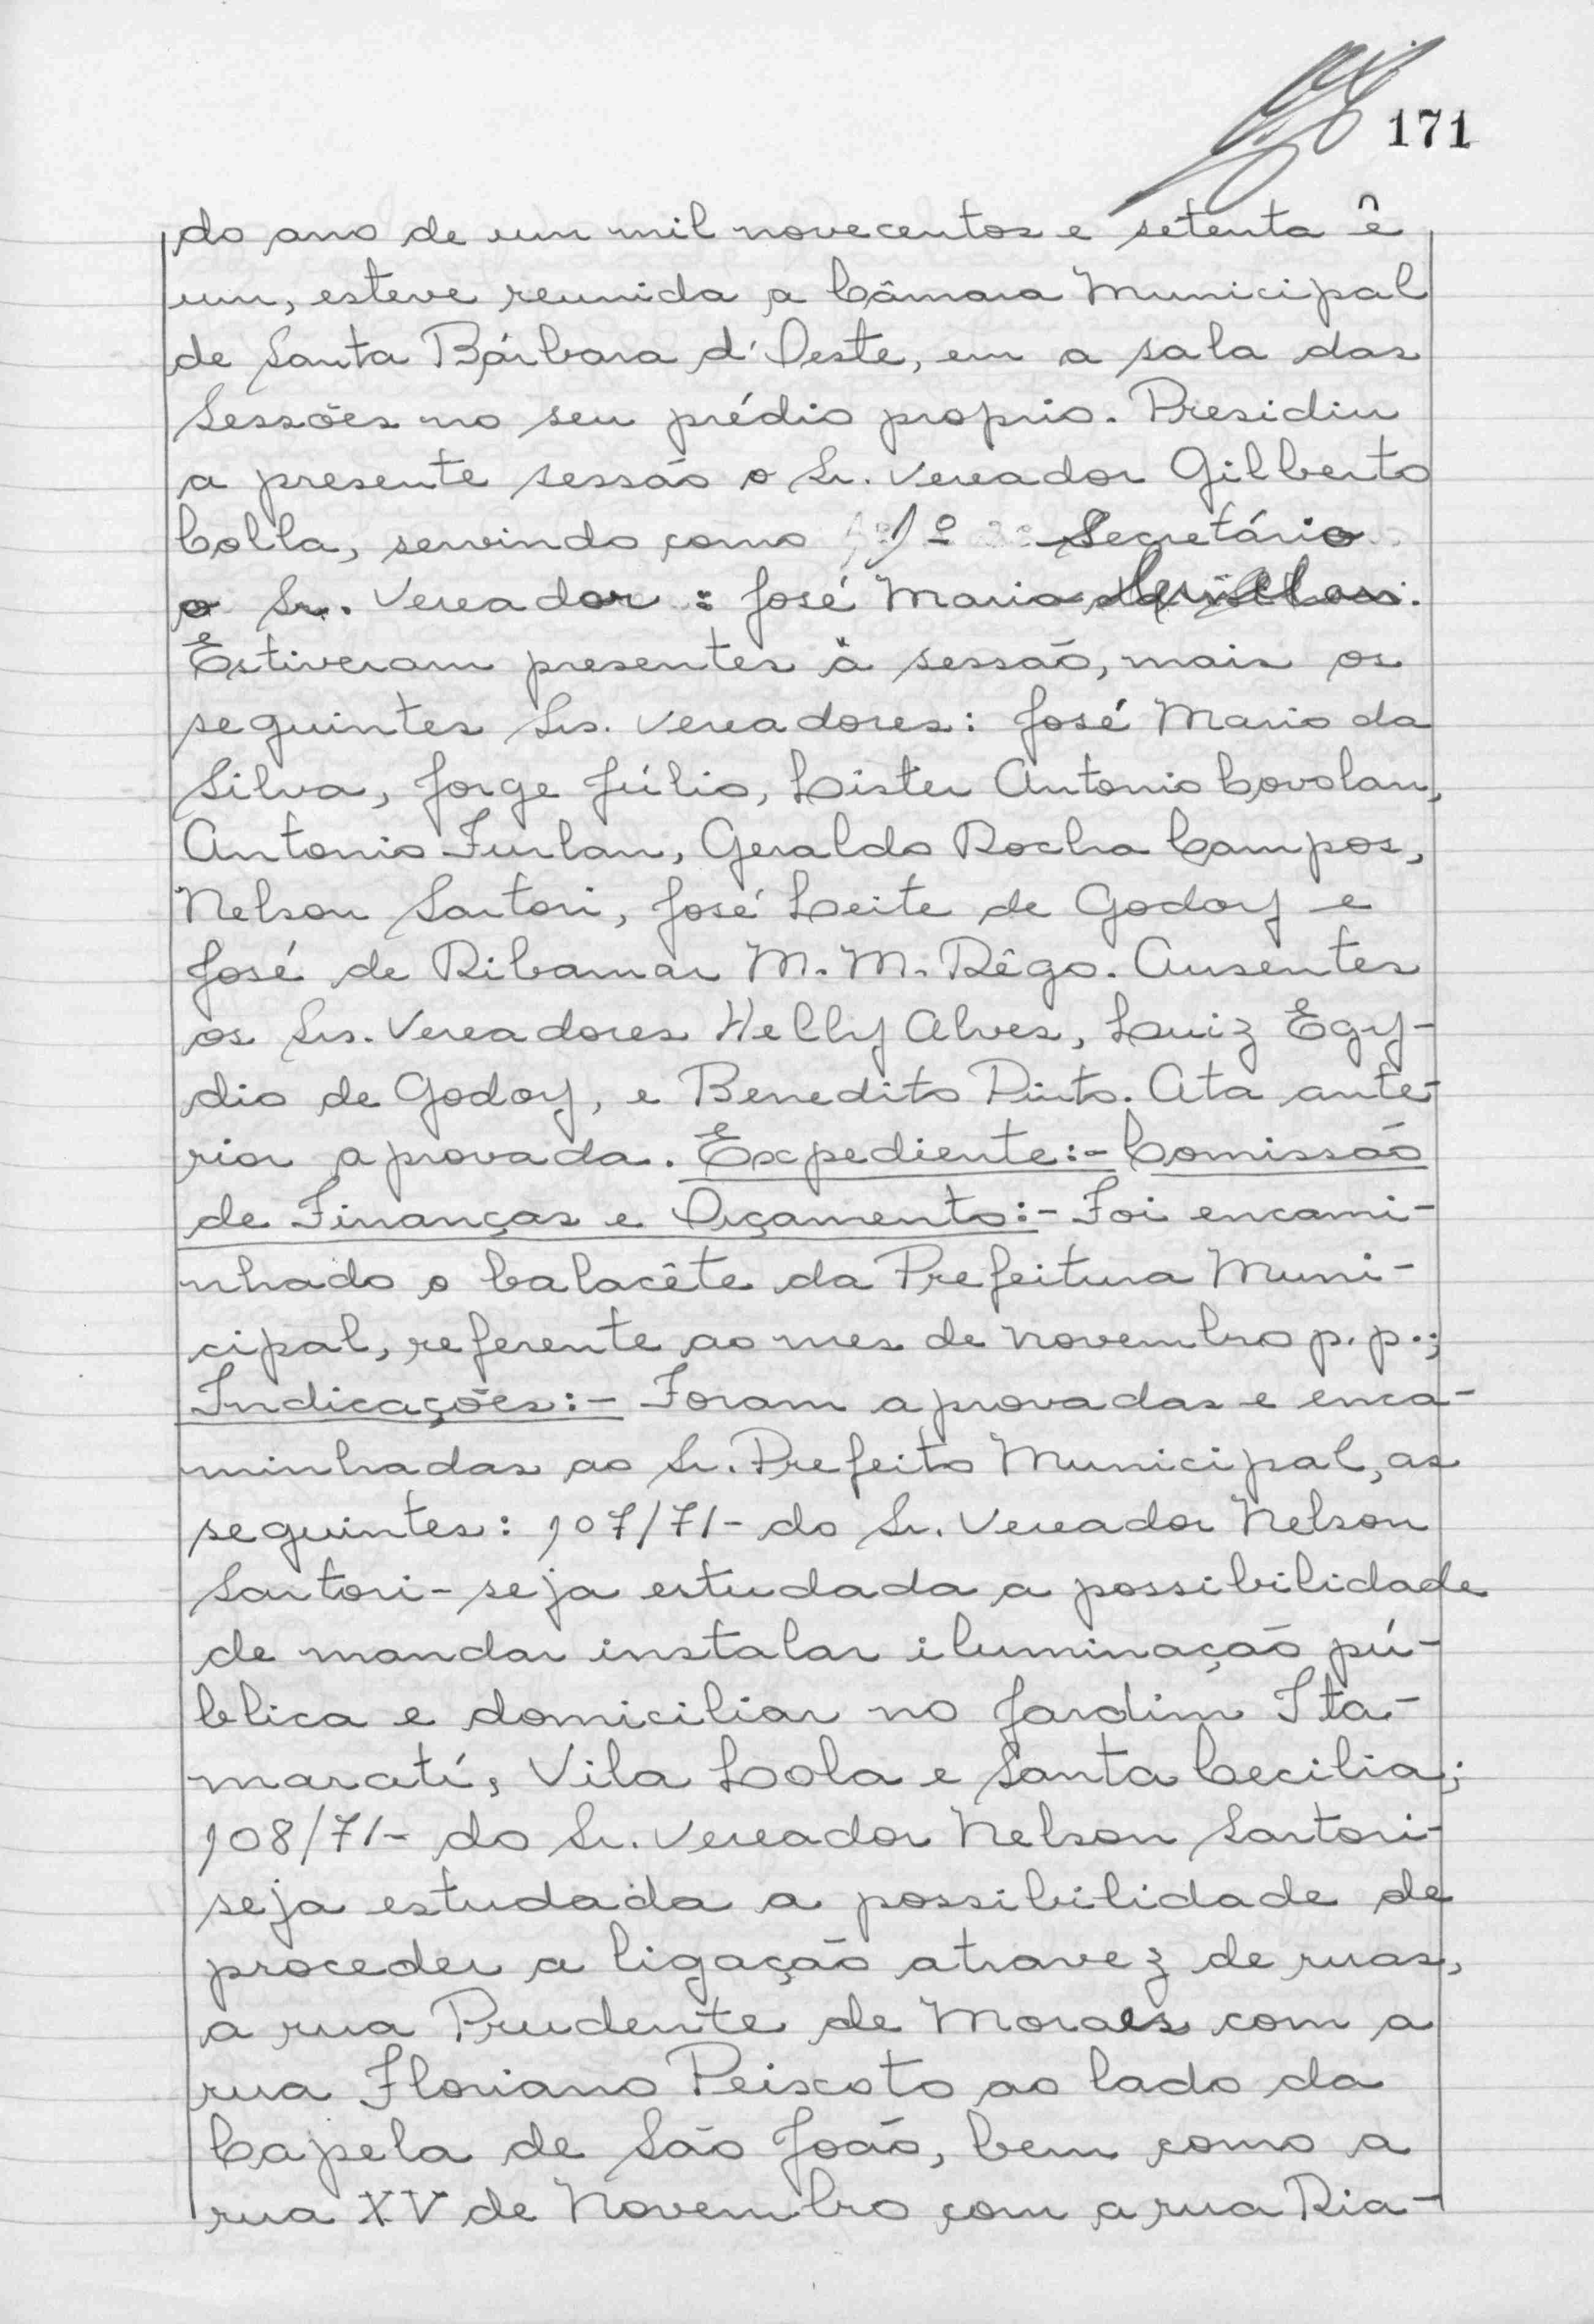 171
do ano de um mil novecentos e setenta ê
um, esteve reunida a Câmara Municipal
de Santa Bárbara d'Oeste, em a sala das
Sessões no seu prédio proprio. Presidiu
a presente sessão o Sr. Vereador Gilberto
Colla, servindo como 1º Secretário
o Sr. Vereador : José Maria
Estiveram presentes à sessão, mais os
seguintes Srs. Vereadores: José Mario da
Silva, Jorge Júlio, Lister Antonio Covolan,
Antonio Furlan, Geraldo Rocha Campos,
Nelson Sartori, José Leite de Godoy e
José de Ribamar M. M. Rêgo. Ausentes
os Srs. Vereadores Helly Alves, Luiz Egy-
dio de Godoy, e Benedito Pinto. Ata ante-
rior aprovada. Expediente:- Comissão
de Finanças e Orçamento:- Foi encami-
nhado o balacête da Prefeitura Muni-
cipal, referente ao mes de novembro p.p.;
Indicações:- Foram aprovadas e enca-
minhadas ao Sr. Prefeito Municipal, as
seguintes: 107/71- do Sr. Vereador Nelson
Sartori- seja estudada a possibilidade
de mandar instalar iluminação pú-
blica e domiciliar no Jardim Ita-
maratí, Vila Lola e Santa Cecilia;
108/71- do Sr. Vereador Nelson Sartori-
seja estudada a possibilidade de
proceder a ligação atravez de ruas,
a rua Prudente de Moraes com a
rua Floriano Peixoto ao lado da
Capela de São João, bem como a
rua XV de Novembro com a rua Ria-